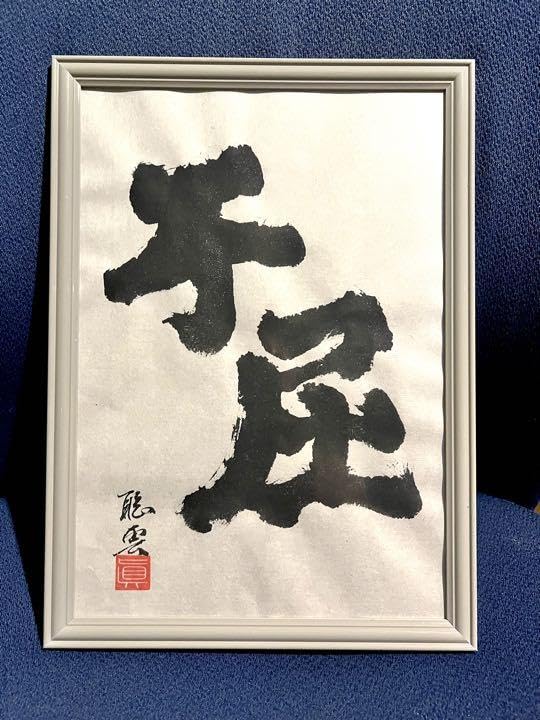 不屈
聡雲
眞